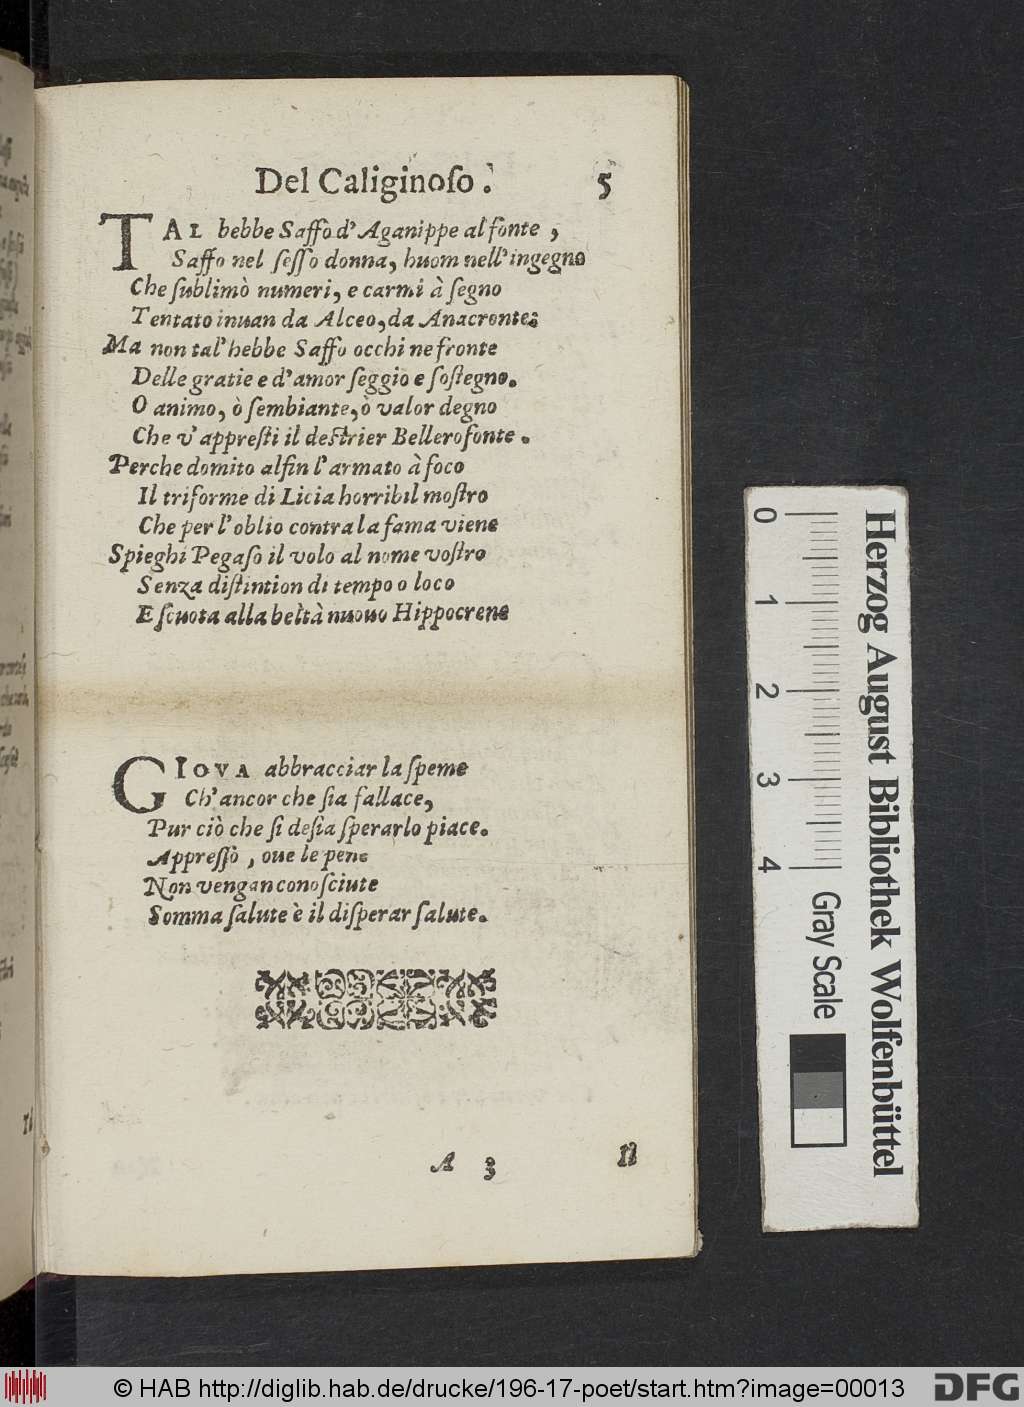 Del Caliginoſo. 5
TAL hebbe Saffo d'Aganippe al fonte,
Saffo nel ſeſſo donna, huom nell'ingegno
Che ſublimò numeri, e carmi à ſegno
Tentato inuan da Alceo, da Anacronte:
Ma non tal'hebbe Saffo occhi ne fronte
Delle gratie e d'amor ſeggio e ſoſtegno.
O animo, ò ſembiante, ò valor degno
Che v'appreſti il deſtrier Bellerofonte.
Perche domito alfin l'armato à foco
Il triforme di Licia horribil moſtro
Che per l'oblio contra la fama viene
Spieghi Pegaſo il volo al nome voſtro
Senza diſtintion di tempo o loco
E ſcuota alla beltà nuouo Hippocrene
GIOVA abbracciar la ſpeme
Ch'ancor che ſia fallace,
Pur ciò che ſi deſia ſperarlo piace.
Appreſſò, oue le pene
Non vengan conoſciute
Somma ſalute è il diſperar ſalute.
A 3 Il
0 1 2 3 4
Gray Scale
Herzog August Bibliothek Wolfenbüttel
© HAB http://diglib.hab.de/drucke/196-17-poet/start.htm?image=00013
DFG